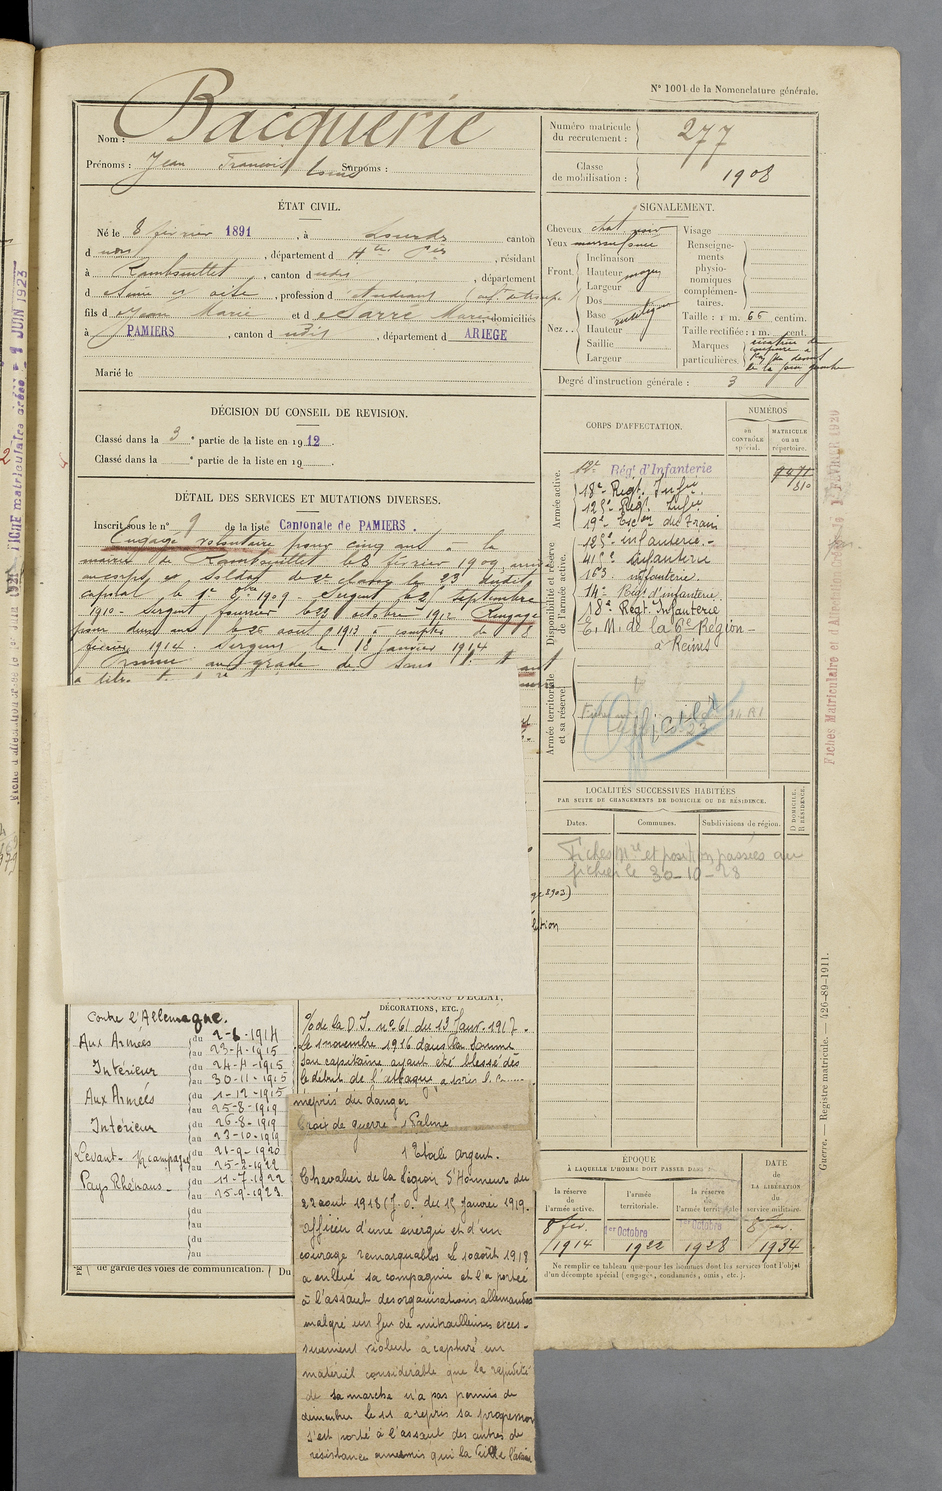 N° 1001 de la Nomenclature générale.
Nom : Bacquerie
Prénoms : Jean François Louis Surnoms :
Numéro matricule du recrutement : 277
Classe de mobilisation : 1908
ÉTAT CIVIL.
Né le 8 février 1891, à Lourdes canton
d udit, département d Htes Pées, résidant
à Rambouillet, canton d udit, département
d Seine et Oise, profession d Etudiant
fils d e Jean Marie et d e Sarré Marie domiciliés
à PAMIERS, canton d udit, département d ARIEGE
Marié le
SIGNALEMENT.
Cheveux chat
Yeux
Front.
Inclinaison
Hauteur moyen
Largeur
Nez..
Dos
Base
Hauteur
Saillie
Largeur
Visage
Renseignements physionomiques complémentaires.
Taille : 1 m. 66 centim.
Taille rectifiée : 1 m. cent.
Marques particulières.
Degré d'instruction générale : 3
DÉCISION DU CONSEIL DE REVISION.
Classé dans la 3e partie de la liste en 1912.
Classé dans la e partie de la liste en 19
DÉTAIL DES SERVICES ET MUTATIONS DIVERSES.
Inscrit sous le n° 9 de la liste Cantonale de PAMIERS.
Engagé volontaire pour cinq ans à la
mairie de Rambouillet le 8 février 1909,
au corps et soldat de 2e classe le 23 dudit,
caporal le 1er 8bre 1909 - Sergent le 21 septembre
1910 - Sergent fourrier le 22 octobre 1912 Rengagé
pour deux ans le 26 août 1913 à compter du 8
février 1914. Sergent le 18 janvier 1914
Promu au grade de Sous
à titre
CORPS D'AFFECTATION.
NUMÉROS
au CONTRÔLE spécial.
MATRICULE ou au répertoire.
Armée active.
Disponibilité et réserve de l'armée active.
Armée territoriale et sa réserve.
Régt d'Infanterie
810
18e Régt. Infie.
125e Régt. Infie
19e Escon du Train
125e infanterie.
415e infanterie
163 infanterie.
14e Régt d'infanterie.
18e Régt. Infanterie
E. M. de la 6e Région -
à Reims
Officier
14 RI
LOCALITÉS SUCCESSIVES HABITÉES
PAR SUITE DE CHANGEMENTS DE DOMICILE OU DE RÉSIDENCE.
Dates.
Communes.
Subdivisions de région.
D DOMICILE. R RÉSIDENCE.
Fiches Mle et position passées au
fichier le 30-10-28
Contre l'Allemagne.
Aux Armées du 2-6-1914
au 23-4-1915
Intérieur du 24-4-1915
au 30-11-1915
Aux Armées du 1-12-1915
au 25-8-1919
Intérieur du 26-8-1919
au 23-10-1919
Levant - en campagne du 21-9-1920
au 25-2-1922
Pays Rhénans du 11-7-1922
au 25-9-1923
du
au
du
au
de garde des voies de communication. Du
ACTIONS D'ÉCLAT,
DÉCORATIONS, ETC.
% de la D.I. n° 61 du 13 Janv. 1917 -
Le 1 novembre 1916 dans la Somme
Son capitaine ayant été blessé dès
le début de l'attaque a pris le
mépris du danger
Croix de guerre 1 Palme
1 Etoile argent.
Chevalier de la Légion d'Honneur du
22 août 1918 (J.O. du 15 Janvier 1919.
Officier d'une énergie et d'un
courage remarquables. Le 10 août 1918
a enlevé sa compagnie et l'a portée
à l'assaut des organisations allemandes
malgré un feu de mitrailleuses exces-
sivement violent a capturé un
matériel considérable que la rapidité
de sa marche n'a pas permis de
dénombrer. Le 11 a repris sa progression
s'est porté à l'assaut des centres de
résistance ennemis qui
EPOQUE
À LAQUELLE L'HOMME DOIT PASSER DANS
DATE de LA LIBÉRATION du service militaire.
la réserve de l'armée active.
l'armée territoriale.
la réserve de l'armée territoriale
8 fév. 1914
1er Octobre 1922
1er Octobre 1928
8 fév. 1934
Ne remplir ce tableau que pour les hommes dont les services font l'objet
d'un décompte spécial (engagés, condamnés, omis, etc.).
Guerre. — Registre matricule. — 126-89-1911.